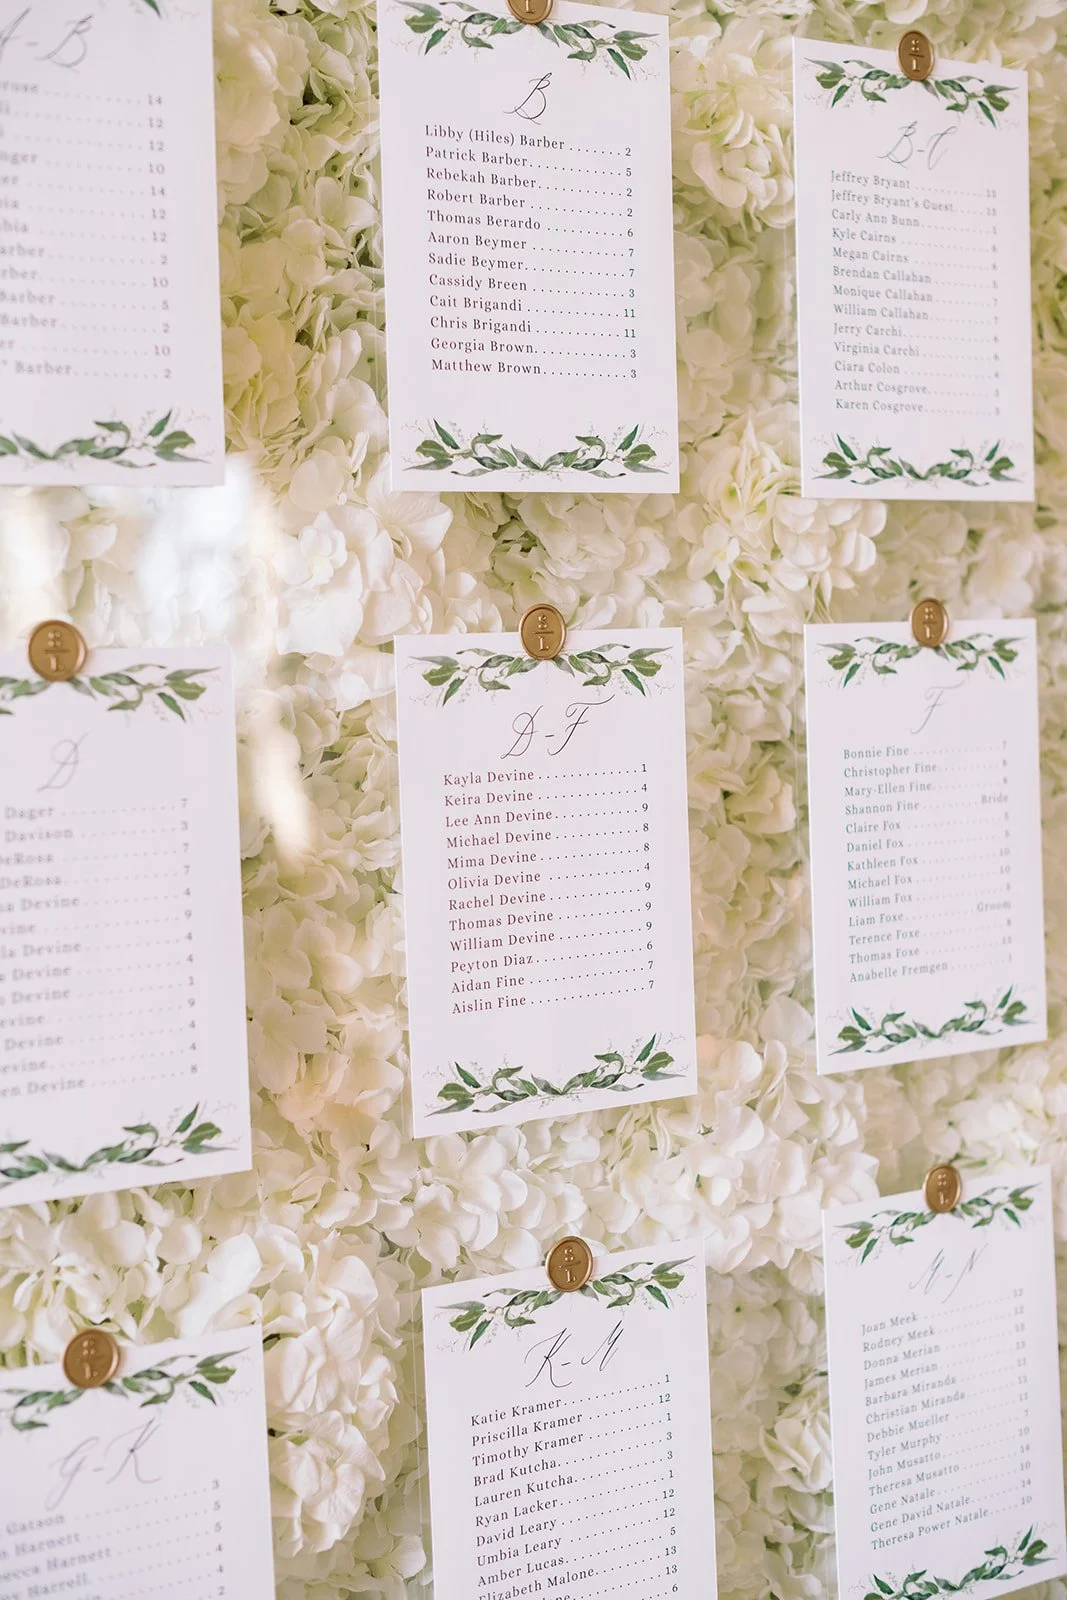 A-B
14
12
12
10
14
12
12
2
10
Barber 5
Barber 2
10
Barber 2
B
Libby (Hiles) Barber 2
Patrick Barber 5
Rebekah Barber 2
Robert Barber 2
Thomas Berardo 6
Aaron Beymer 7
Sadie Beymer 7
Cassidy Breen 3
Cait Brigandi 11
Chris Brigandi 11
Georgia Brown 3
Matthew Brown 3
S
L
B-C
Jeffrey Bryant 13
Jeffrey Bryant's Guest 13
Carly Ann Bunn 1
Kyle Cairns 6
Megan Cairns 6
Brendan Callahan
Monique Callahan 7
William Callahan 7
Jerry Carchi 6
Virginia Carchi 6
Ciara Colon 4
Arthur Cosgrove 3
Karen Cosgrove 3
S
L
D
Dager 7
Davison 3
DeRosa 7
DeRosa 7
Devine 4
9
Devine 4
Devine 4
Devine 1
9
Devine 4
4
Devine 8
S
L
D-F
Kayla Devine 1
Keira Devine 4
Lee Ann Devine 9
Michael Devine 8
Mima Devine 8
Olivia Devine 4
Rachel Devine 9
Thomas Devine 9
William Devine 9
Peyton Diaz 6
Aidan Fine 7
Aislin Fine 7
S
L
F
Bonnie Fine 7
Christopher Fine 8
Mary-Ellen Fine 8
Shannon Fine Bride
Claire Fox 5
Daniel Fox 5
Kathleen Fox 10
Michael Fox 10
William Fox
Liam Foxe Groom
Terence Foxe 8
Thomas Foxe
Anabelle Fremgen 1
S
L
G-K
3
Gatson 5
Harnett 5
Harnett 4
Harrell 4
2
S
L
K-M
Katie Kramer 1
Priscilla Kramer 12
Timothy Kramer 1
Brad Kutcha 3
Lauren Kutcha 3
Ryan Lacker 1
David Leary 12
Umbia Leary 12
Amber Lucas 5
Elizabeth Malone 13
13
6
S
L
M-N
Joan Meek 12
Rodney Meek 12
Donna Merian 13
James Merian 13
Barbara Miranda 11
Christian Miranda 11
Debbie Mueller 13
Tyler Murphy 7
John Musatto 10
Theresa Musatto 14
Gene Natale 10
Gene David Natale 14
Theresa Power Natale 10